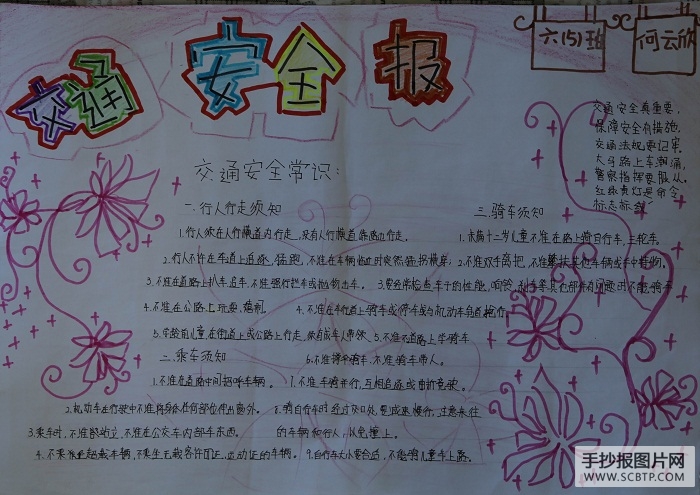 交通
安全
报
六(5)班
何云欣
交通安全真重要,
保障安全有措施.
交通法规要记牢.
大马路上车潮涌,
警察指挥要服从.
红绿黄灯是命令,
交通安全常识:
一.行人行走须知
1.行人须在人行横道内行走,没有人行横道靠路边行走.
2.行人不许在车道上追逐、猛跑,不准在车辆临近时突然猛拐横穿;
3.不准在道路上扒车、追车,不准强行拦车或抛物击车.
4.不准在公路上玩耍、嬉闹.
5.学龄前儿童在街道上或公路上行走,须有成年人带领.
二、乘车须知
1.不准在道路中间招呼车辆.
2.机动车在行驶中不准将身体任何部位伸出窗外.
3.乘车时,不准站立,不准在公交车内部
4.不乘超载车辆,不乘坐无载客许可证、运动证的车辆.
三.骑车须知
1.未满十二岁儿童不准在路上骑自行车、三轮车.
2.不准双手离把,不准攀扶其他车辆或手中持物.
3.要经常检查车子的性能,响铃、刹车
4.不准在车行道上骑车或停车或与机动车争道抢行.
5.不准在道路上学骑车.
6.不准骑车带人.
7.不准骑车并行、互相追逐或曲折竞驶.
8.骑自行车时经过交叉口处,要减速慢行,注意来往
的车辆和行人,以免撞上.
9.自行车大小要合适,不能骑儿童车上路.
手抄报图片网
WWW.SCBTP.COM